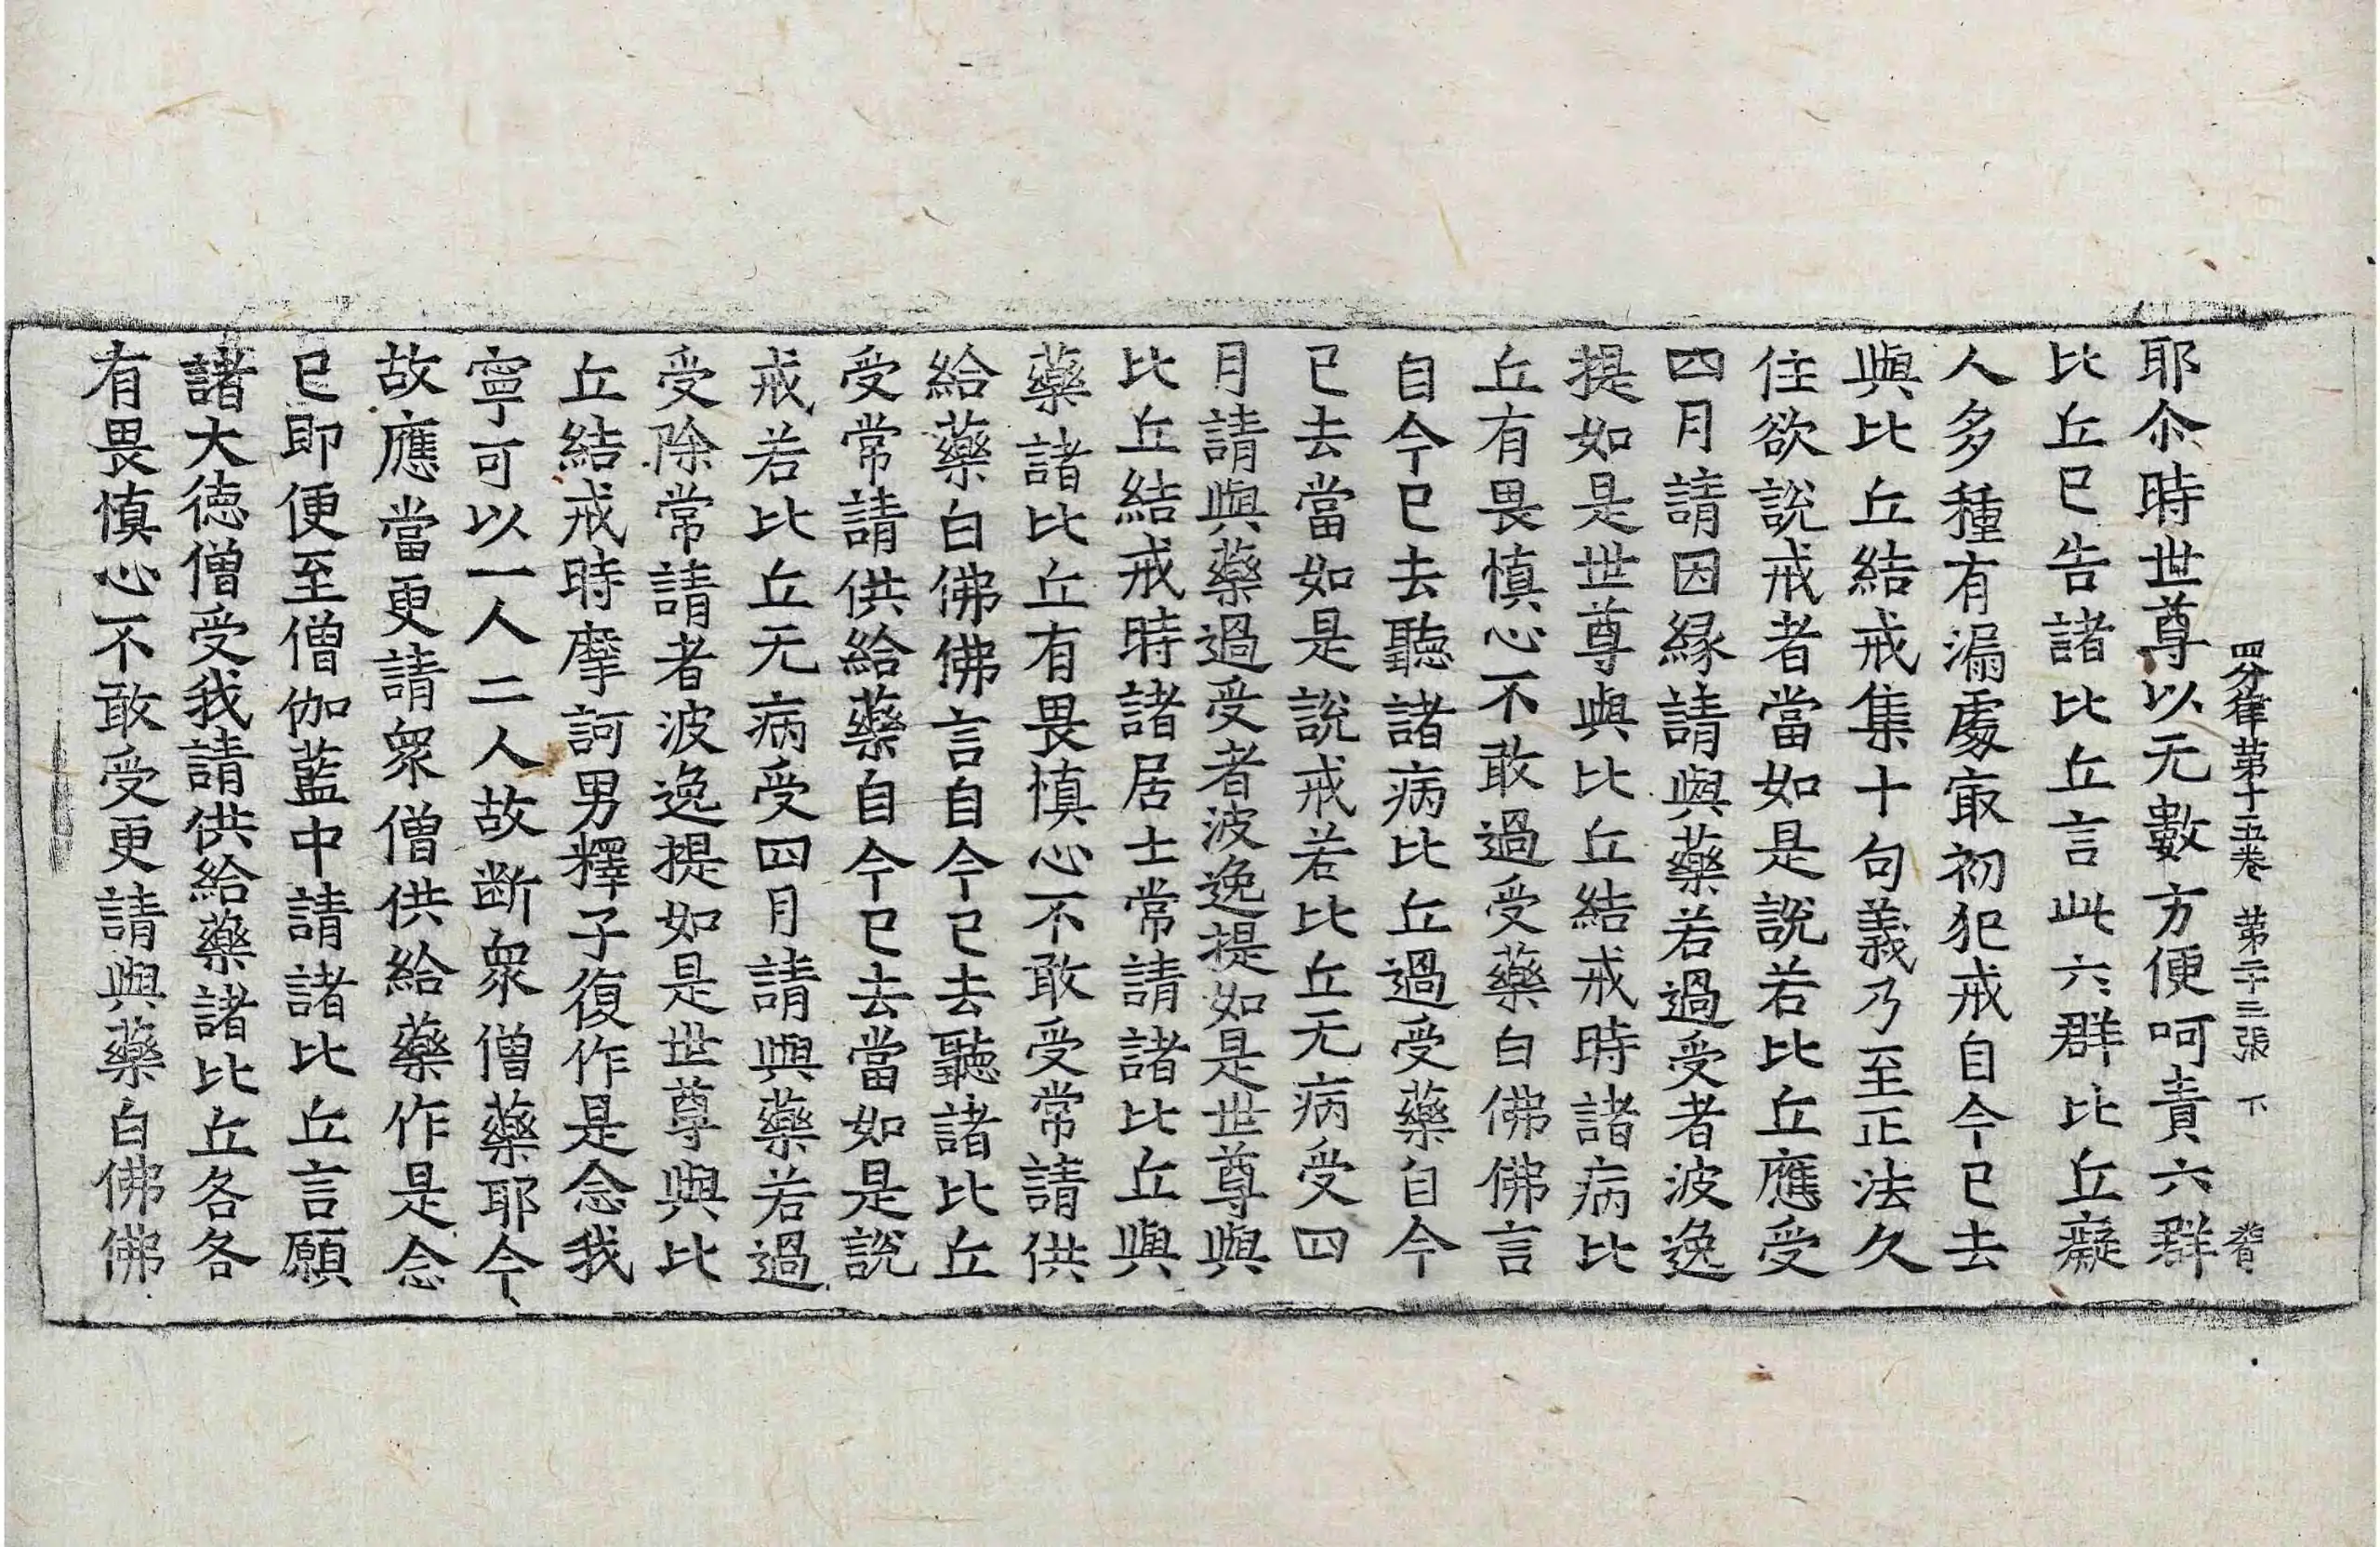 四分律第十五卷 第二十三張 下
耶尒時世尊以无數方便呵責六群
比丘已告諸比丘言此六群比丘癡
人多種有漏處㝡初犯戒自今已去
與比丘結戒集十句義乃至正法久
住欲說戒者當如是說若比丘應受
四月請因緣請與藥若過受者波逸
提如是世尊與比丘結戒時諸病比
丘有畏慎心不敢過受藥白佛佛言
自今已去聽諸病比丘過受藥自今
已去當如是說戒若比丘无病受四
月請與藥過受者波逸提如是世尊與
比丘結戒時諸居士常請諸比丘與
藥諸比丘有畏慎心不敢受常請供
給藥白佛佛言自今已去聽諸比丘
受常請供給藥自今已去當如是說
戒若比丘无病受四月請與藥若過
受除常請者波逸提如是世尊與比
丘結戒時摩訶男釋子復作是念我
寧可以一人二人故斷衆僧藥耶今
故應當更請衆僧供給藥作是念
已即便至僧伽藍中請諸比丘言願
諸大德僧受我請供給藥諸比丘各各
有畏慎心不敢受更請與藥白佛佛